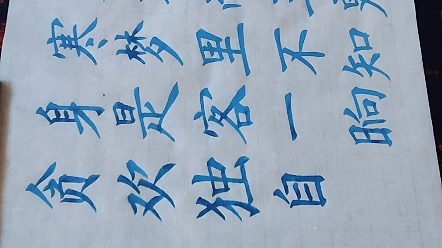 寒梦里不知
身是客一晌
贪欢独自